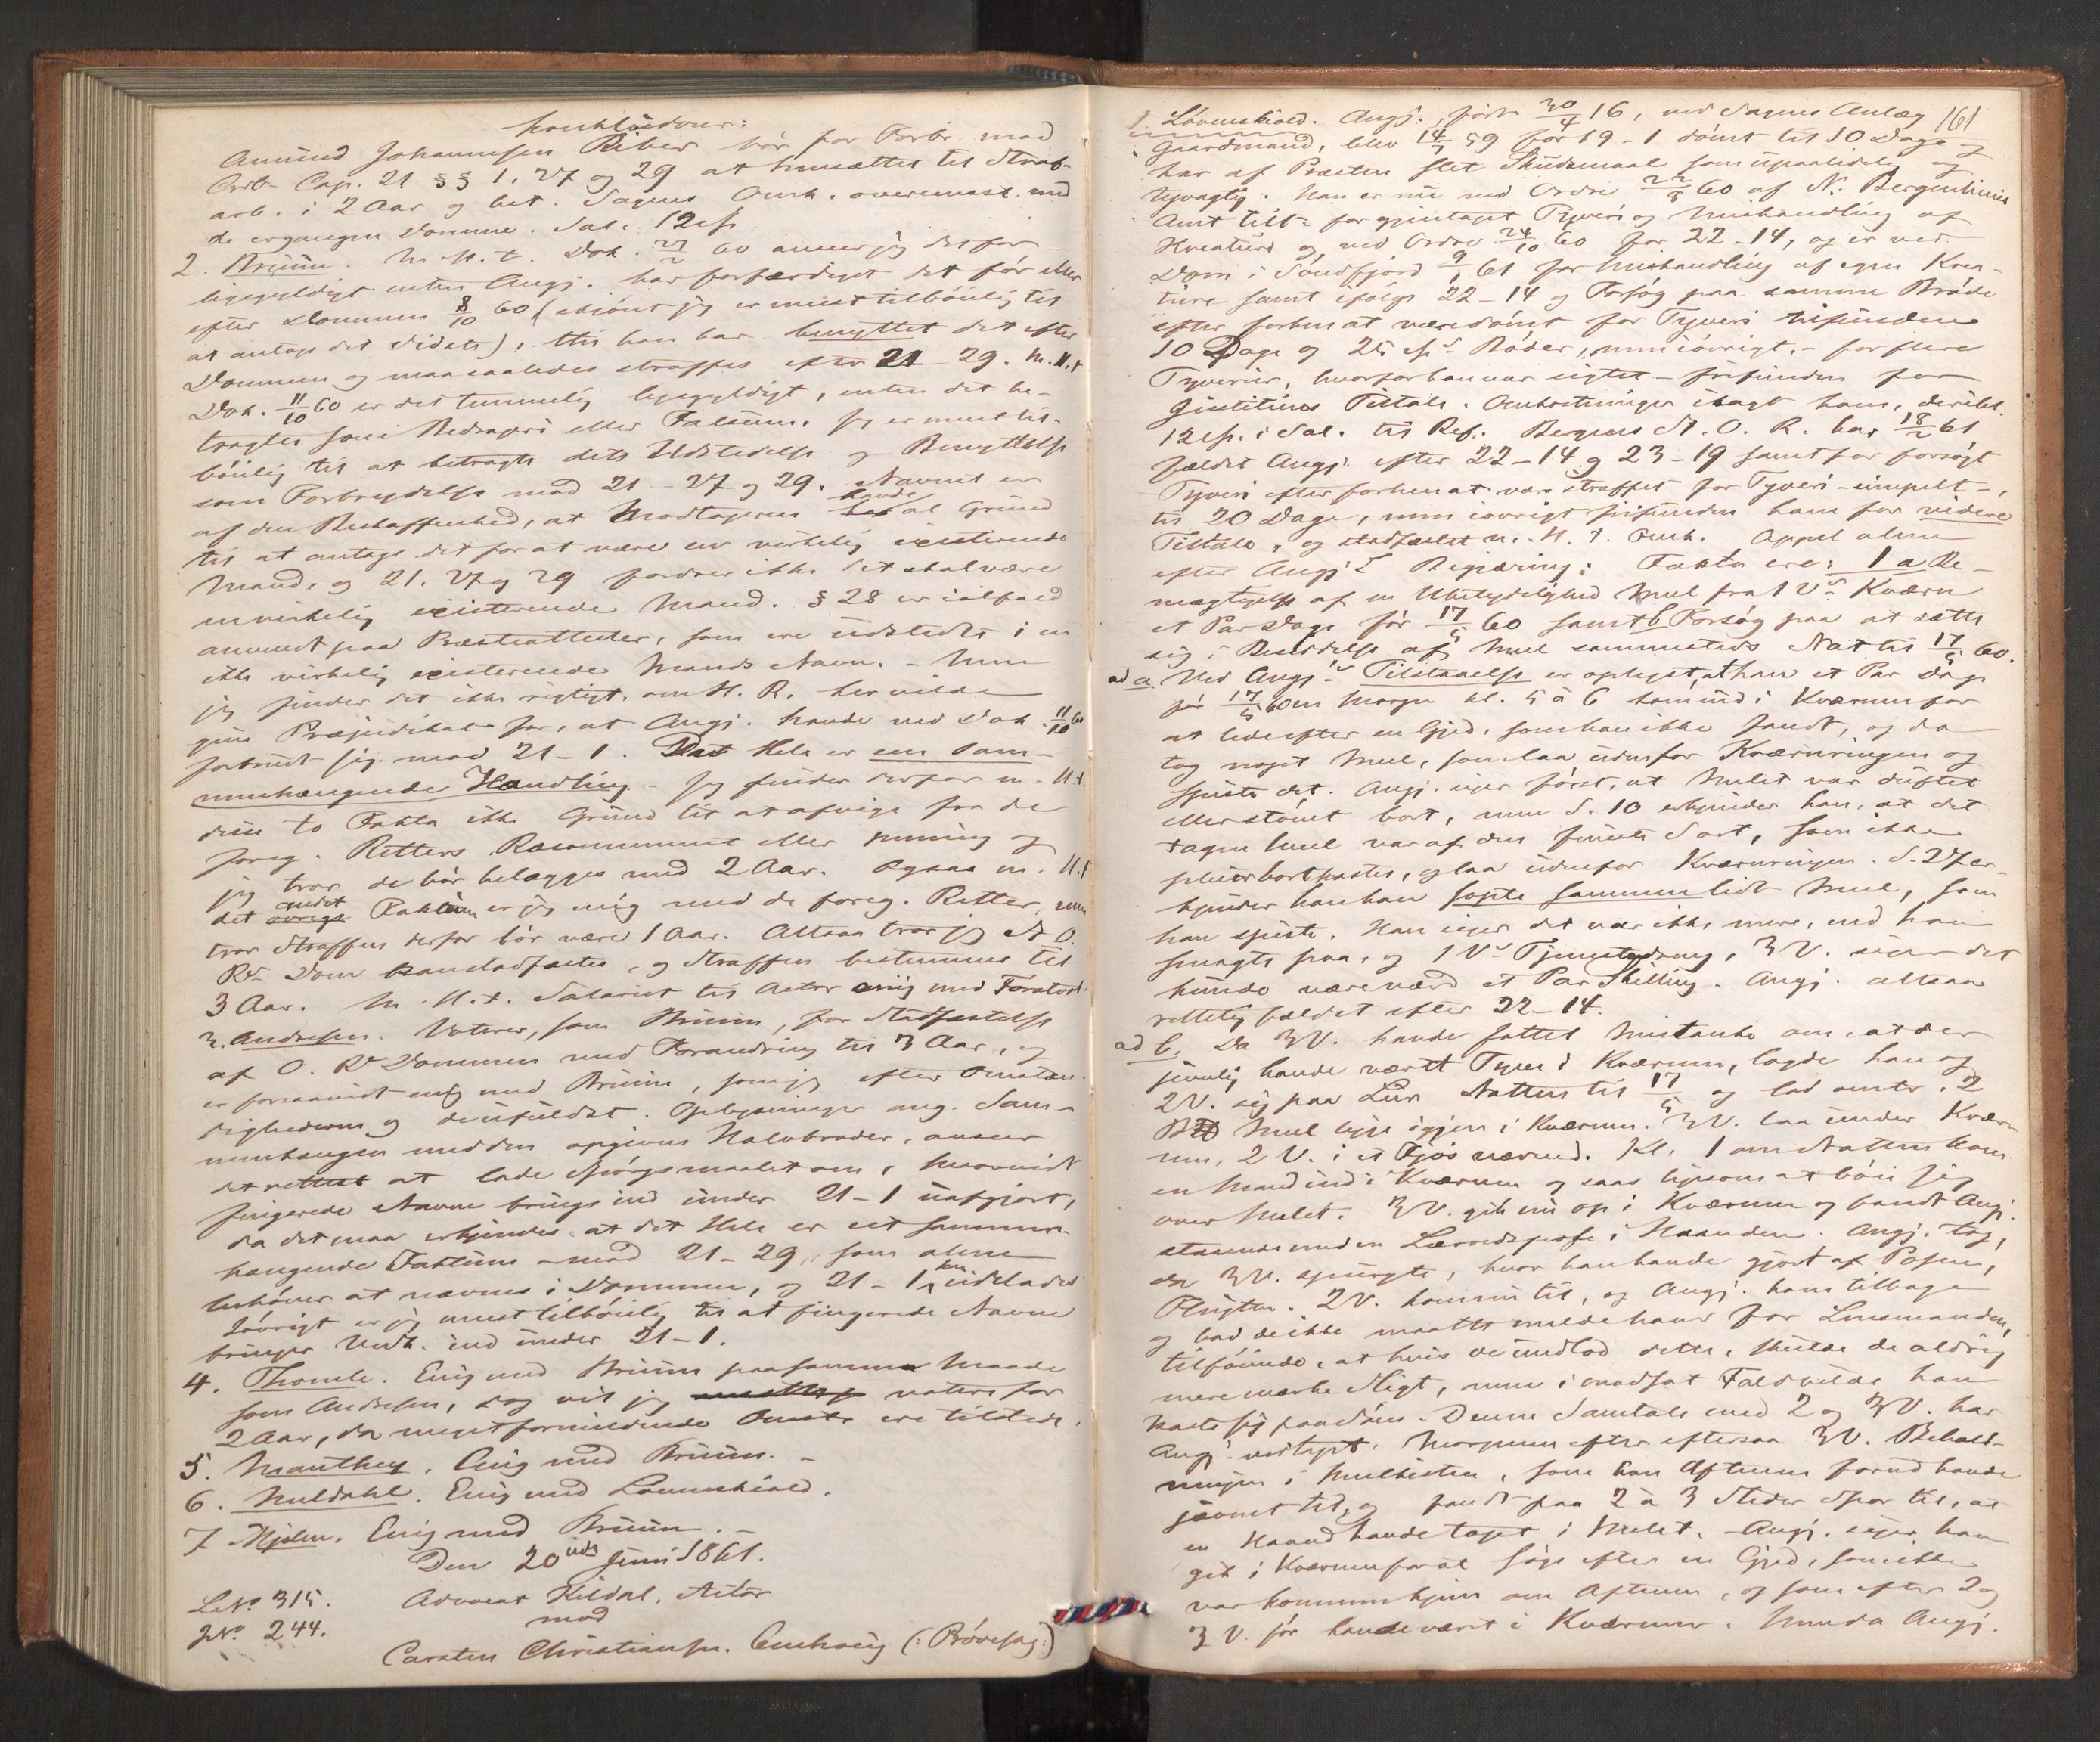 konkluderer:
Amund Johannesen Riber bør for Forbr. mod
Crlb. Cap. 21 §§ 1, 27 og 29 at hensættes til Straf-
arb. i 2 Aar og bet. Sagens Omk. overensst. med
de ergangne Domme. Sal. 12 Sp
2. Bruun. M. H. t. Dok. 27/2 60 anser jeg det for
ligegyldigt enten Angj. har forfærdiget det før eller
efter Dommen 8/10 60 (skjønt jeg er meest tilbøielig til
at antage det Sidste), thi han har benyttet det efter
Dommen og maa saaledes straffes efter 21-29. M. H. t
Dok. 11/10 60 er det temmelig ligegyldigt, enten det be-
tragtes som Bedrageri eller Falsum. Jeg er meest til-
bøielig til at betragte dets Udstedelse og Benyttelse
som Forbrydelse mod 21-27 og 29. Navnet er
af den Beskaffenhed, at Modtageren havde al Grund
til at antage det for at være en virkelig existerende
Mand, og 21. 27 og 29 fordrer ikke det skal være
en virkelig existerende Mand. § 28 er ialfald
anvendt paa Præsteattester, som ere udstedte i en
ikke virkelig existerende Mands Navn. - Men
jeg finder det ikke rigtigt, om H. R. her vilde
give Præjudikat for, at Angj. havde ved Dok. 11/10 60
forbrudt sig mod 21-1. Det Hele er een sam-
menhængende Handling. - Jeg finder derfor m. H. t.
disse to Fakta ikke Grund til at afvige fra de
foreg. Retters Raisonnement eller Mening og
jeg tror de bør belægges med 2 Aar. Ogsaa m. H. t
det andet Faktum er jeg enig med de foreg. Retter, men
tror Straffen derfor bør være 1 Aar. Altsaa tror jeg St. O.
Rs Dom kan stadfæstes, og Straffen bestemmes til
3 Aar. M. H. t. Salariet til Actor enig med Førstvot.
3. Andresen. Voterer, som Bruun, for Stadfæstelse
af O. Rs Dommen med Forandring til 3 Aar, og
er forsaavidt enig med Bruun, som jeg efter Omstæn-
dighederne og de ufuldst. Oplysninger ang. Sam-
menhængen med den opgivne Halvbroder, anser
det rettest at lade Spørgsmaalet om, hvorvidt
fingerede Navne bringes ind under 21-1 uafgjort,
da det maa erkjendes at det Hele er eet sammen-
hængende Faktum - mod 21-29, som alene
behøver at nævnes i Dommen, og 21-1 kan udelades
Iøvrigt er jeg meest tilbøielig til at fingerede Navne
bringes vedk. ind under 21-1.
4. Thomle. Enig med Bruun paa samme Maade
som Andresen, dog vil jeg votere for
2 Aar, da meget formildende Omst. ere tilstede.
5. Manthey. Enig med Bruun. -
6. Muldahl. Enig med Løvenskiold.
7. Hjelm. Enig med Bruun. -
Den 20nde Juni 1861.
L. No. 315. Advocat Kildal, Actor
J. No. 244. mod
Carsten Christiansn. Emhøug (: Prøvesag :)
161
1. Løvenskiold. Angj., født 30/4 16, ved Sagens Anlæg
Gaardmand, blev 14/7 59 for 19-1 dømt til 10 Dage og
har af Præsten slet Skudsmaal som upaalidelig og
tyvagtig. Han er nu ved Ordre 22/8 60 af N. Bergenhuus
Amt tilt. for gjentaget Tyveri og Mishandling af
Kreaturer og ved Ordre 24/10 60 for 22-14, og er ved
Dom i Søndfjord 9/1 61 for Mishandling af egne Krea-
turer samt ifølge 22-14 og Forsøg paa samme Brøde
efter forhen at være dømt for Tyveri tilfunden
10 Dage og 25 Sps Bøder, men iøvrigt - for flere
Tyverier, hvorfor han var sigtet - frifunden for
Justitiens Tiltale. Omkostninger ilagt ham, deribl.
12 Sp. i Sal. til Ref. Bergens St. O. R. har 18/2 61
fældet Angj. efter 22-14 og 23-19 samt for forsøgt
Tyveri efter forhen at være straffet for Tyveri - simpelt -,
til 20 Dage, men iøvrigt frifunden ham for videre
Tiltale, og stadfæstet m. H. t. Omk. Appel alene
efter Angjs Begjæring. Fakta ere: 1 a Be-
mægtigelse af en Ubetydelighed Meel fra 1 Vs Kværn
et Par Dage før 17/5 60 samt b Forsøg paa at sætte
sig i Besiddelse af Meel sammesteds Nat til 17/5 60.
ad a Ved Angj's Tilstaaelse er oplyst, at han et Par Dage
før 17/5 60 en Morgen kl. 5 à 6 kom ind i Kværnen for
at lede efter en Gjed, som han ikke fandt, og da
tog noget Meel, som laa udenfor Kværnringen og
spiste det. Angj. siger først, at Melet var duftet
eller støvet bort, men S. 10 erkjender han, at det
tagne Meel var af den fineste Sort, som ikke
pleier bortkastes, og laa udenfor Kværnringen. S. 27 er-
kjender han han sopte sammen lidt Meel, som
han spiste. Han siger det var ikke mere, end han
smagte paa, og 1 Vs Tjenestedreng, 3 V. siger det
kunde være værd et Par Skilling. Angj. altsaa
rettelig fældet efter 22-14.
ad b. Da 3 V. havde fattet Mistanke om, at der
jevnlig havde været Tyve i Kværnen, lagde han og
2 V. sig paa Lur Natten til 17/5 og lod omtr. 2
B Meel ligge igjen i Kværnen. 3 V. laa under Kvær-
nen, 2 V. i et Fjøs nærved. Kl. 1 om Natten kom
en Mand ind i Kværnen og saas ligesom at bøie sig
over Melet. 3 V. gik nu op i Kværnen og fandt Angj.
staaende med en Lærredspose i Haanden. Angj. tog,
da 3 V. spurgte, hvor han havde gjort af Posen,
Flugten. 2 V. kom nu til, og Angj. kom tilbage
og bad de ikke maatte melde ham for Lensmanden,
tilføiende, at hvis de undlod dette, skulde de aldrig
mere mærke Sligt, men i modsat Fald vilde han
kaste sig paa Søen. Denne Samtale med 2 og 3 V. har
Angj. vedtaget. Morgenen efter eftersaa 3 V. Behold-
ningen i Meelkisten, som han Aftenen forud havde
jævnet til, og fandt paa 2 à 3 Steder Spor til, at
en Haand havde taget i Melet. - Angj. siger han
gik i Kværnen for at søge efter en Gjed, som ikke
var kommen hjem om Aftenen, og som efter 2 og
3 V. før havde været i Kværnen. Men da Angj.